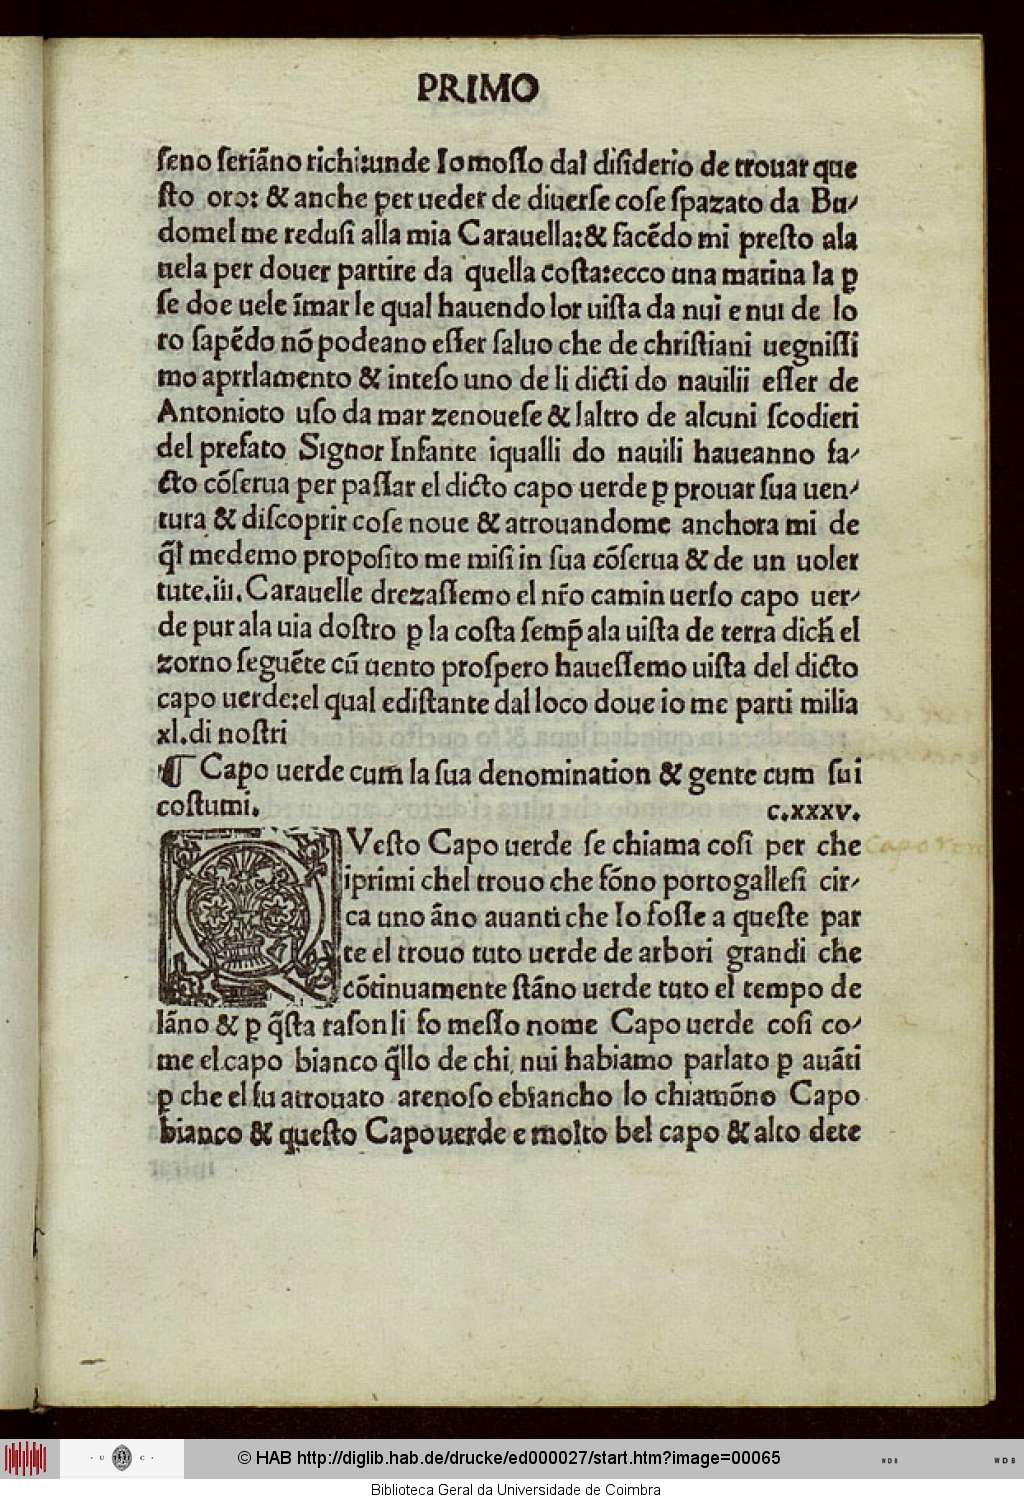 PRIMO
ſeno ſeriāno richi:unde Io moſſo dal diſiderio de trouar que
ſto oro: & anche per ueder de diuerſe coſe ſpazato da Bu-
domel me reduſi alla mia Carauella:& facēdo mi preſto ala
uela per douer partire da quella coſta:ecco una matina la ꝑ
ſe doe uele īmar le qual hauendo lor uiſta da nui e nui de lo
ro ſapēdo nō podeano eſſer ſaluo che de chriſtiani uegniſſi
mo aprrlamento & inteſo uno de li dicti do nauilii eſſer de
Antonioto uſo da mar zenoueſe & laltro de alcuni ſcodieri
del prefato Signor Infante iqualli do nauili haueanno fa-
cto cōſerua per paſſar el dicto capo uerde ꝑ prouar ſua uen-
tura & diſcoprir coſe noue & atrouandome anchora mi de
q̃l medemo propoſito me miſi in ſua cōſerua & de un uoler
tute.iii.Carauelle drezaſſemo el nr̃o camin uerſo capo uer-
de pur ala uia doſtro ꝑ la coſta ſemp̃ ala uiſta de terra dicħ el
zorno ſeguēte cū uento proſpero haueſſemo uiſta del dicto
capo uerde:el qual ediſtante dal loco doue io me parti milia
xl.di noſtri
¶ Capo uerde cum̄ la ſua denomination & gente cum ſui
coſtumi. c.xxxv.
QVeſto Capo uerde ſe chiama coſi per che
iprimi chel trouo che fōno portogalleſi cir-
ca uno āno auanti che Io foſſe a queſte par
te el trouo tuto uerde de arbori grandi che
cōtinuamente ſtāno uerde tuto el tempo de
lāno & ꝑ q̃ſta raſon li fo meſſo nome Capo uerde coſi co-
me el capo bianco q̃llo de chi nui habiamo parlato ꝑ auāti
ꝑ che el fu atrouato arenoſo ebiancho lo chiamōno Capo
bianco & queſto Capo uerde e molto bel capo & alto dete
© HAB http://diglib.hab.de/drucke/ed000027/start.htm?image=00065
Biblioteca Geral da Universidade de Coimbra